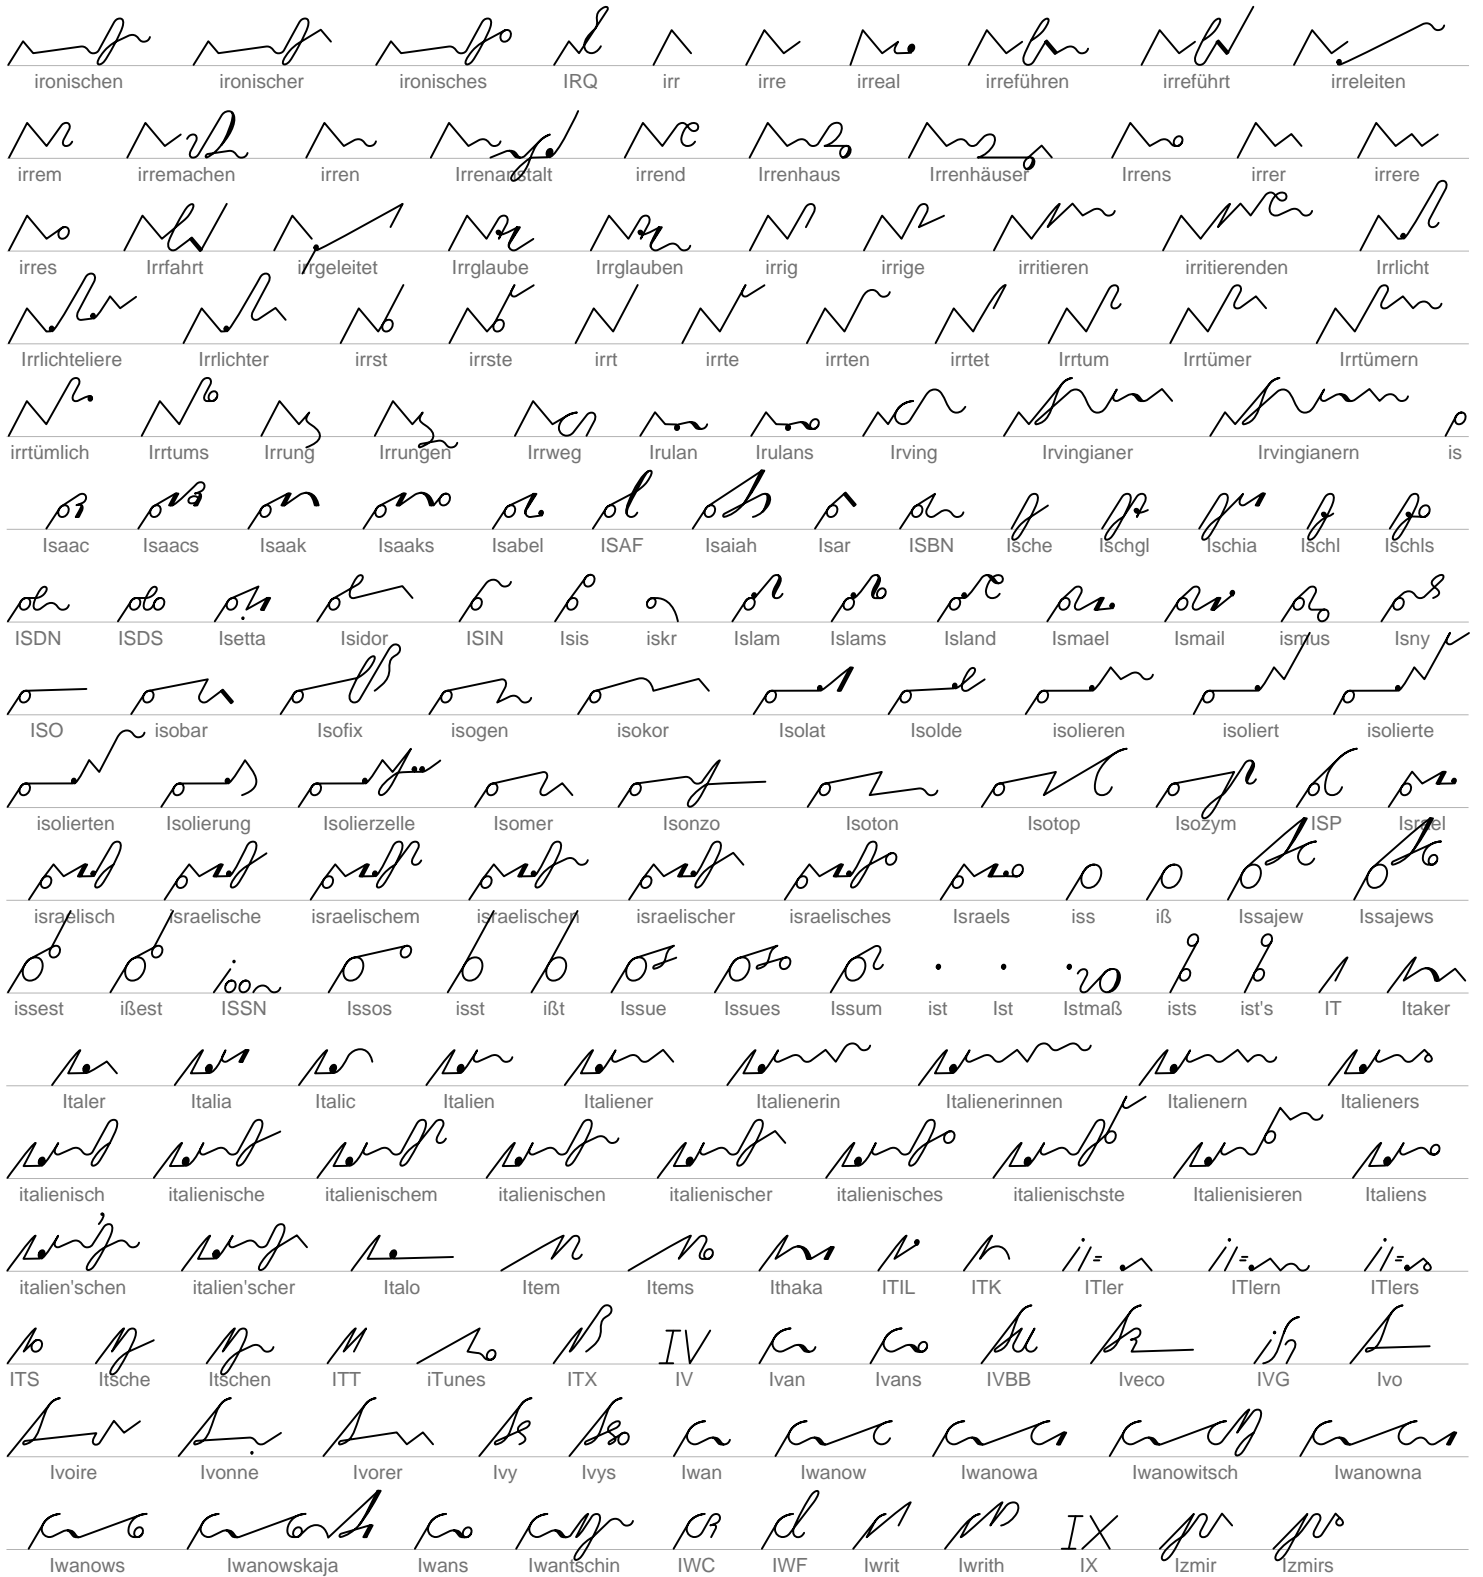 ironischen ironischer ironisches IRQ irr irre irreal irreführen irreführt irreleiten
irrem irremachen irren Irrenanstalt irrend Irrenhaus Irrenhäuser Irrens irrer irrere
irres Irrfahrt irrgeleitet Irrglaube Irrglauben irrig irrige irritieren irritierenden Irrlicht
Irrlichteliere Irrlichter irrst irrste irrt irrte irrten irrtet Irrtum Irrtümer Irrtümern
irrtümlich Irrtums Irrung Irrungen Irrweg Irulan Irulans Irving Irvingianer Irvingianern is
Isaac Isaacs Isaak Isaaks Isabel ISAF Isaiah Isar ISBN Ische Ischgl Ischia Ischl Ischls
ISDN ISDS Isetta Isidor ISIN Isis iskr Islam Islams Island Ismael Ismail ismus Isny
ISO isobar Isofix isogen isokor Isolat Isolde isolieren isoliert isolierte
isolierten Isolierung Isolierzelle Isomer Isonzo Isoton Isotop Isozym ISP Israel
israelisch israelische israelischem israelischen israelischer israelisches Israels iss iß Issajew Issajews
issest ißest ISSN Issos isst ißt Issue Issues Issum ist Ist Istmaß ists ist's IT Itaker
Italer Italia Italic Italien Italiener Italienerin Italienerinnen Italienern Italieners
italienisch italienische italienischem italienischen italienischer italienisches italienischste Italienisieren Italiens
italien'schen italien'scher Italo Item Items Ithaka ITIL ITK ITler ITlern ITlers
ITS Itsche Itschen ITT iTunes ITX IV Ivan Ivans IVBB Iveco IVG Ivo
Ivoire Ivonne Ivorer Ivy Ivys Iwan Iwanow Iwanowa Iwanowitsch Iwanowna
Iwanows Iwanowskaja Iwans Iwantschin IWC IWF Iwrit Iwrith IX Izmir Izmirs